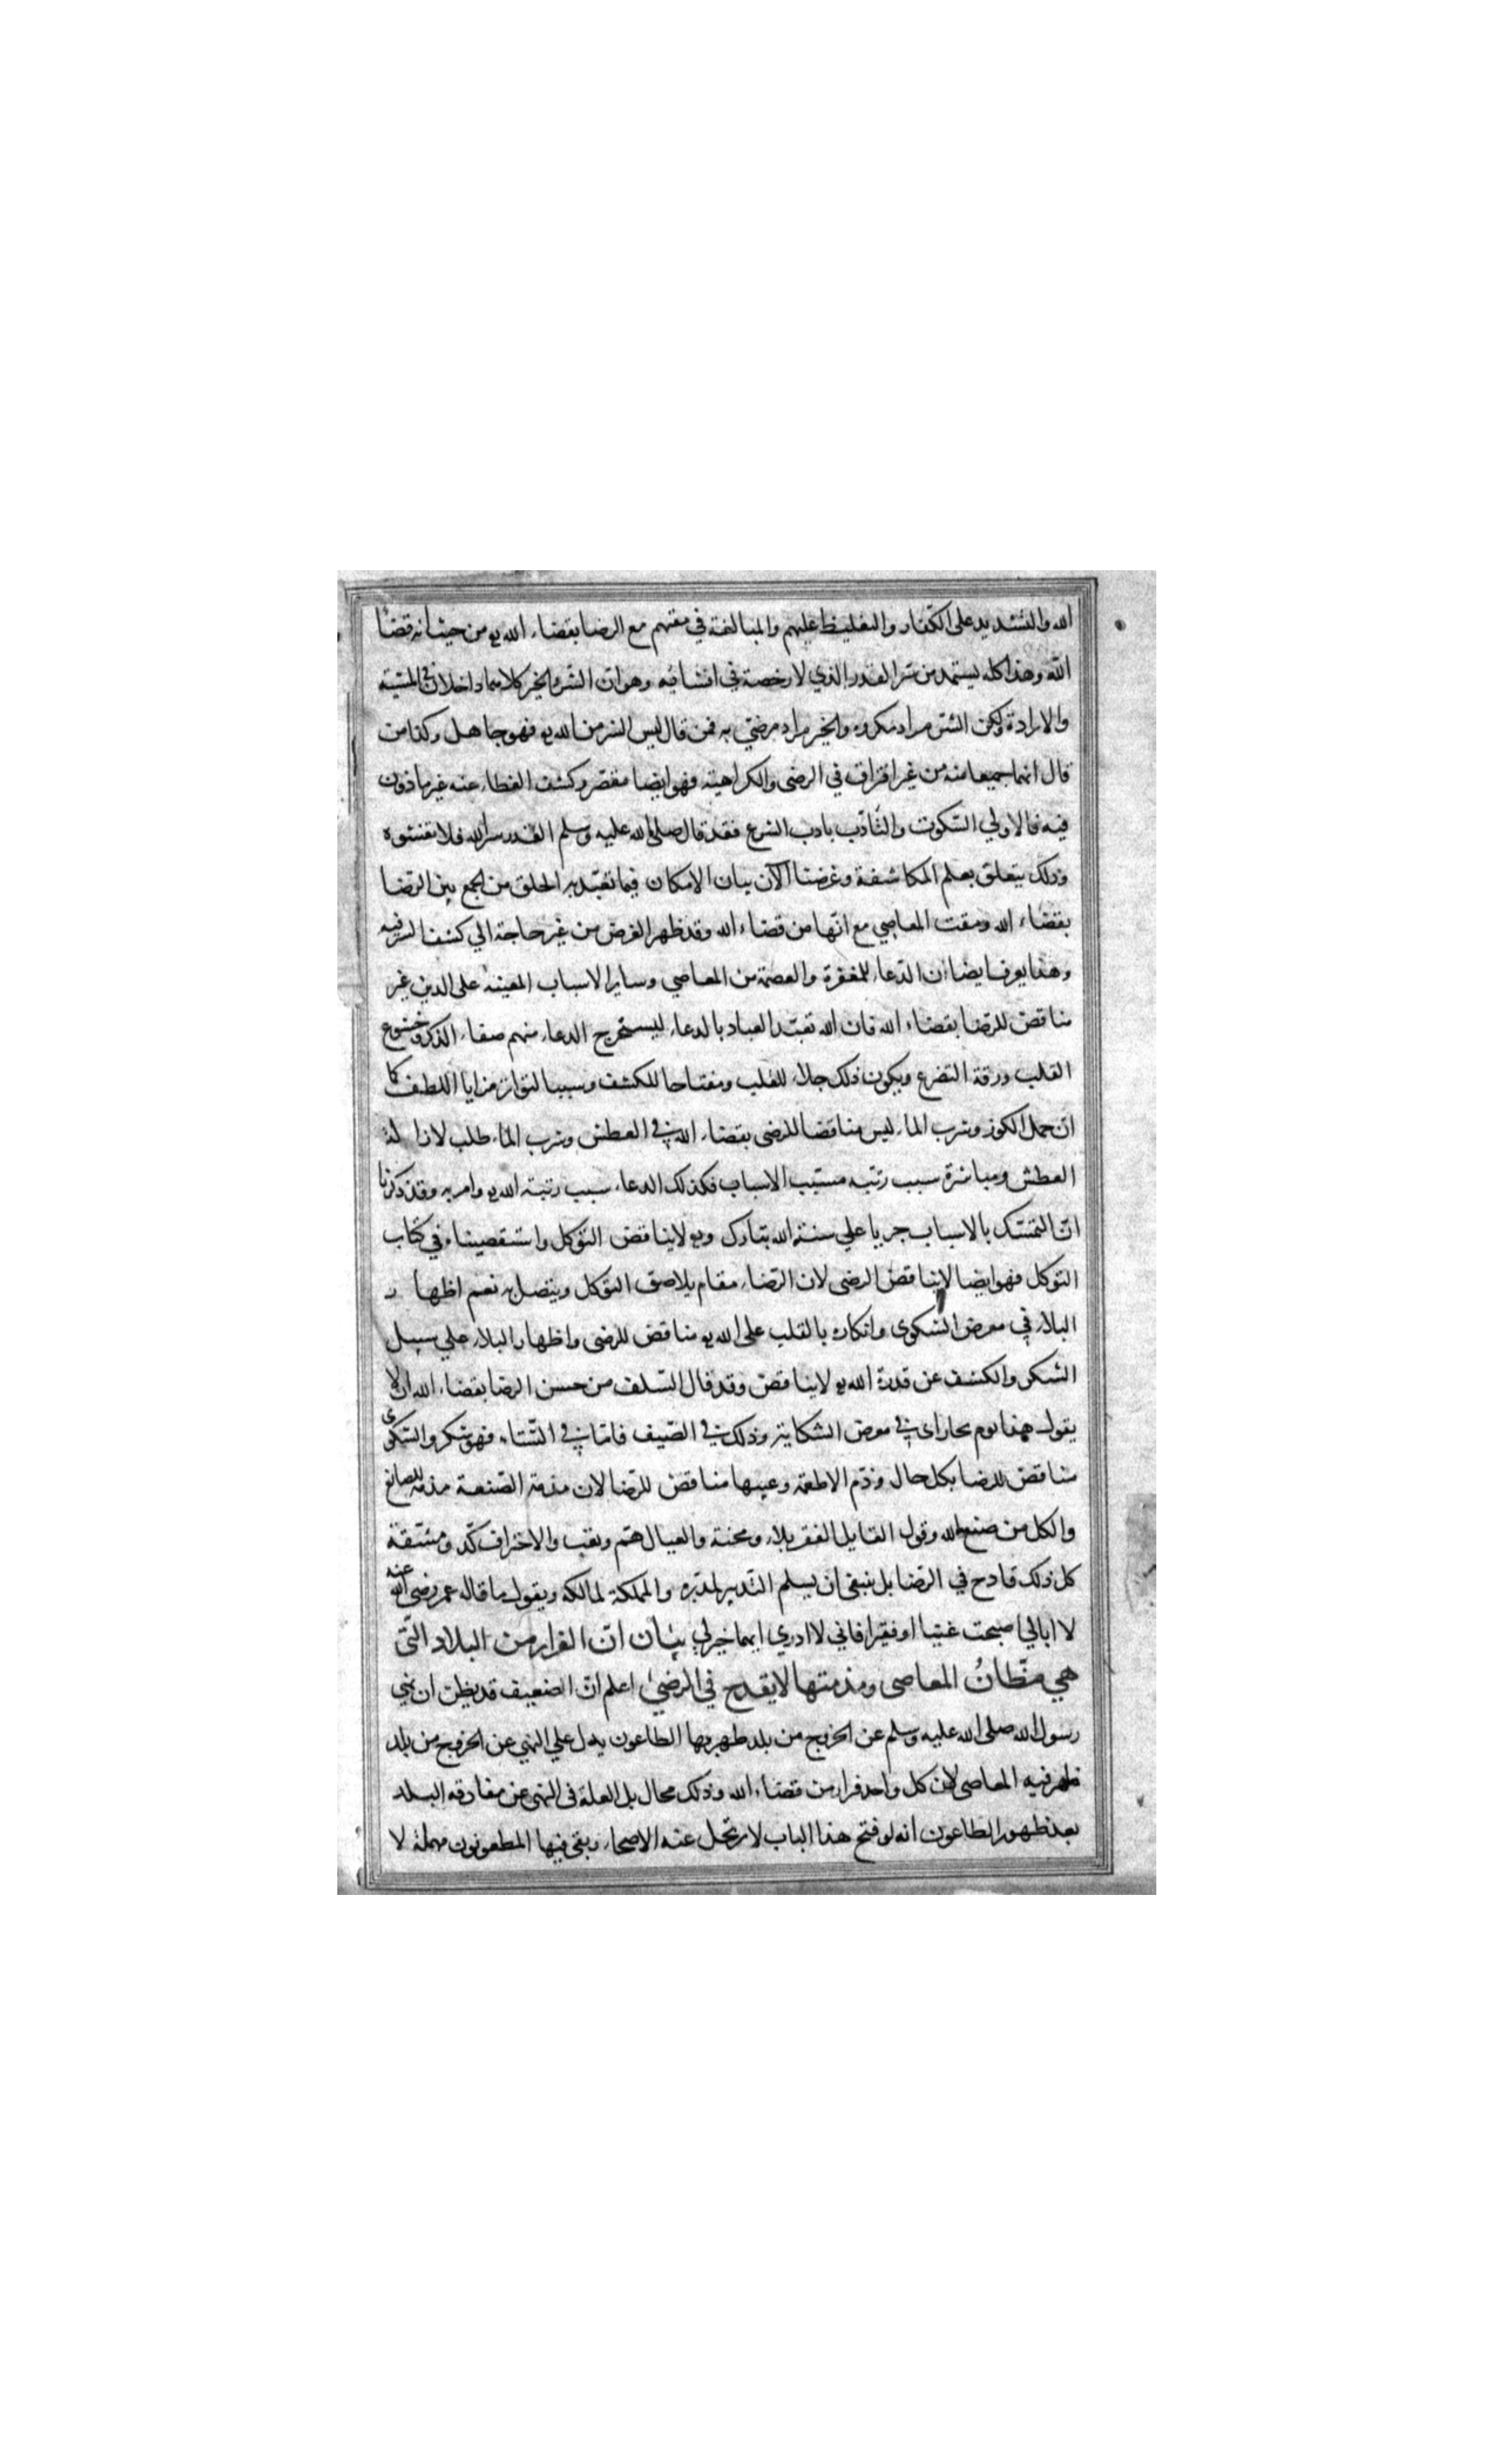 الله والتشديد على الكفار والتغليظ عليهم والمبالغة في مقتهم مع الرضا بقضاء الله يو من حيث انه قضا
الله وهذا كله يستمد من سر القدر الذي لا رخصة في افشائه وهو ان الشر والخير كلاهما داخلان في المشية
والارادة ولكن الشر مراد مكروه والخير مراد مرضي به فمن قال ليس الشر من الله يو فهو جاهل وكذا من
قال انهما جميعا منه من غير افتراق في الرضى والكراهية فهو ايضا مقصر وكشف الغطاء عنه غير ماذون
فيه فالاولي السكوت والتأدب بادب الشرع فقد قال صلى الله عليه وسلم القدر سر الله فلا تفشوه
وذلك يتعلق بعلم المكاشفة وغرضنا الآن بيان الامكان فيما تعبد به الخلق من الجمع بين الرضا
بقضاء الله ومقت المعاصي مع انها من قضاء الله وقد ظهر الغرض من غير حاجة الي كشف السر فيه
وهذا يعرف ايضا ان الدعاء للمغفرة والعصمة من المعاصي وساير الاسباب المعينة على الدين غير
مناقض للرضا بقضاء الله فان الله تعبد العباد بالدعاء ليستخرج الدعاء منهم صفاء الذكر وخشوع
القلب ورقة التضرع ويكون ذلك جلاء للقلب ومفتاحا للكشف وسببا لتواتر مزايا اللطف كما
ان حمل الكوز وشرب الماء ليس مناقضا للرضى بقضاء الله في العطش وشرب الماء طلب لازالة
العطش ومباشرة سبب رتبه مسبب الاسباب فكذلك الدعاء سبب رتبته الله يو وامر به وقد ذكرنا
ان التمسك بالاسباب جريا علي سنة الله تبارك ويو لا يناقض التوكل واستقصيناه في كتاب
التوكل فهو ايضا لا يناقض الرضى لان الرضاء مقام يلاصق التوكل ويتصل به نعم اظهار
البلاء في معرض الشكوى وانكاره بالقلب على الله يو مناقض للرضى واظهار البلاء علي سبيل
الشكر والكشف عن قدرة الله يو لا يناقض وقد قال السلف من حسن الرضا بقضاء الله ان لا
يقول هذا يوم حار اي في معرض الشكاية وذلك في الصيف فاما في الشتاء فهو شكر والشكوى
مناقض للرضا بكل حال وذم الاطعمة وعيبها مناقض للرضا لان مذمة الصنعة مذمة للصانع
والكل من صنع الله وقول القايل الفقر بلاء ومحنة والعيال هم وتعب والاحتراف كد ومشقة
كل ذلك قادح في الرضا بل ينبغي ان يسلم التدبير لمدبره والمملكة لمالكه ويقول ما قاله عمر رضي الله عنه
لا ابالي اصبحت غنيا او فقيرا فاني لا ادري ايهما خير لي بيان ان الفرار من البلاد التي
هي مظان المعاصي ومذمتها لا يقدح في الرضى اعلم ان الضعيف قد يظن ان نهي
رسول الله صلى الله عليه وسلم عن الخروج من بلد ظهر بها الطاعون يدل علي النهي عن الخروج من بلد
ظهر فيه المعاصي لان كل واحد فرار من قضاء الله وذلك محال بل العلة في النهي عن مفارقه البلد
بعد ظهور الطاعون انه لو فتح هذا الباب لارتحل عنه الاصحاء وبقي فيها المطعونون مهملة لا